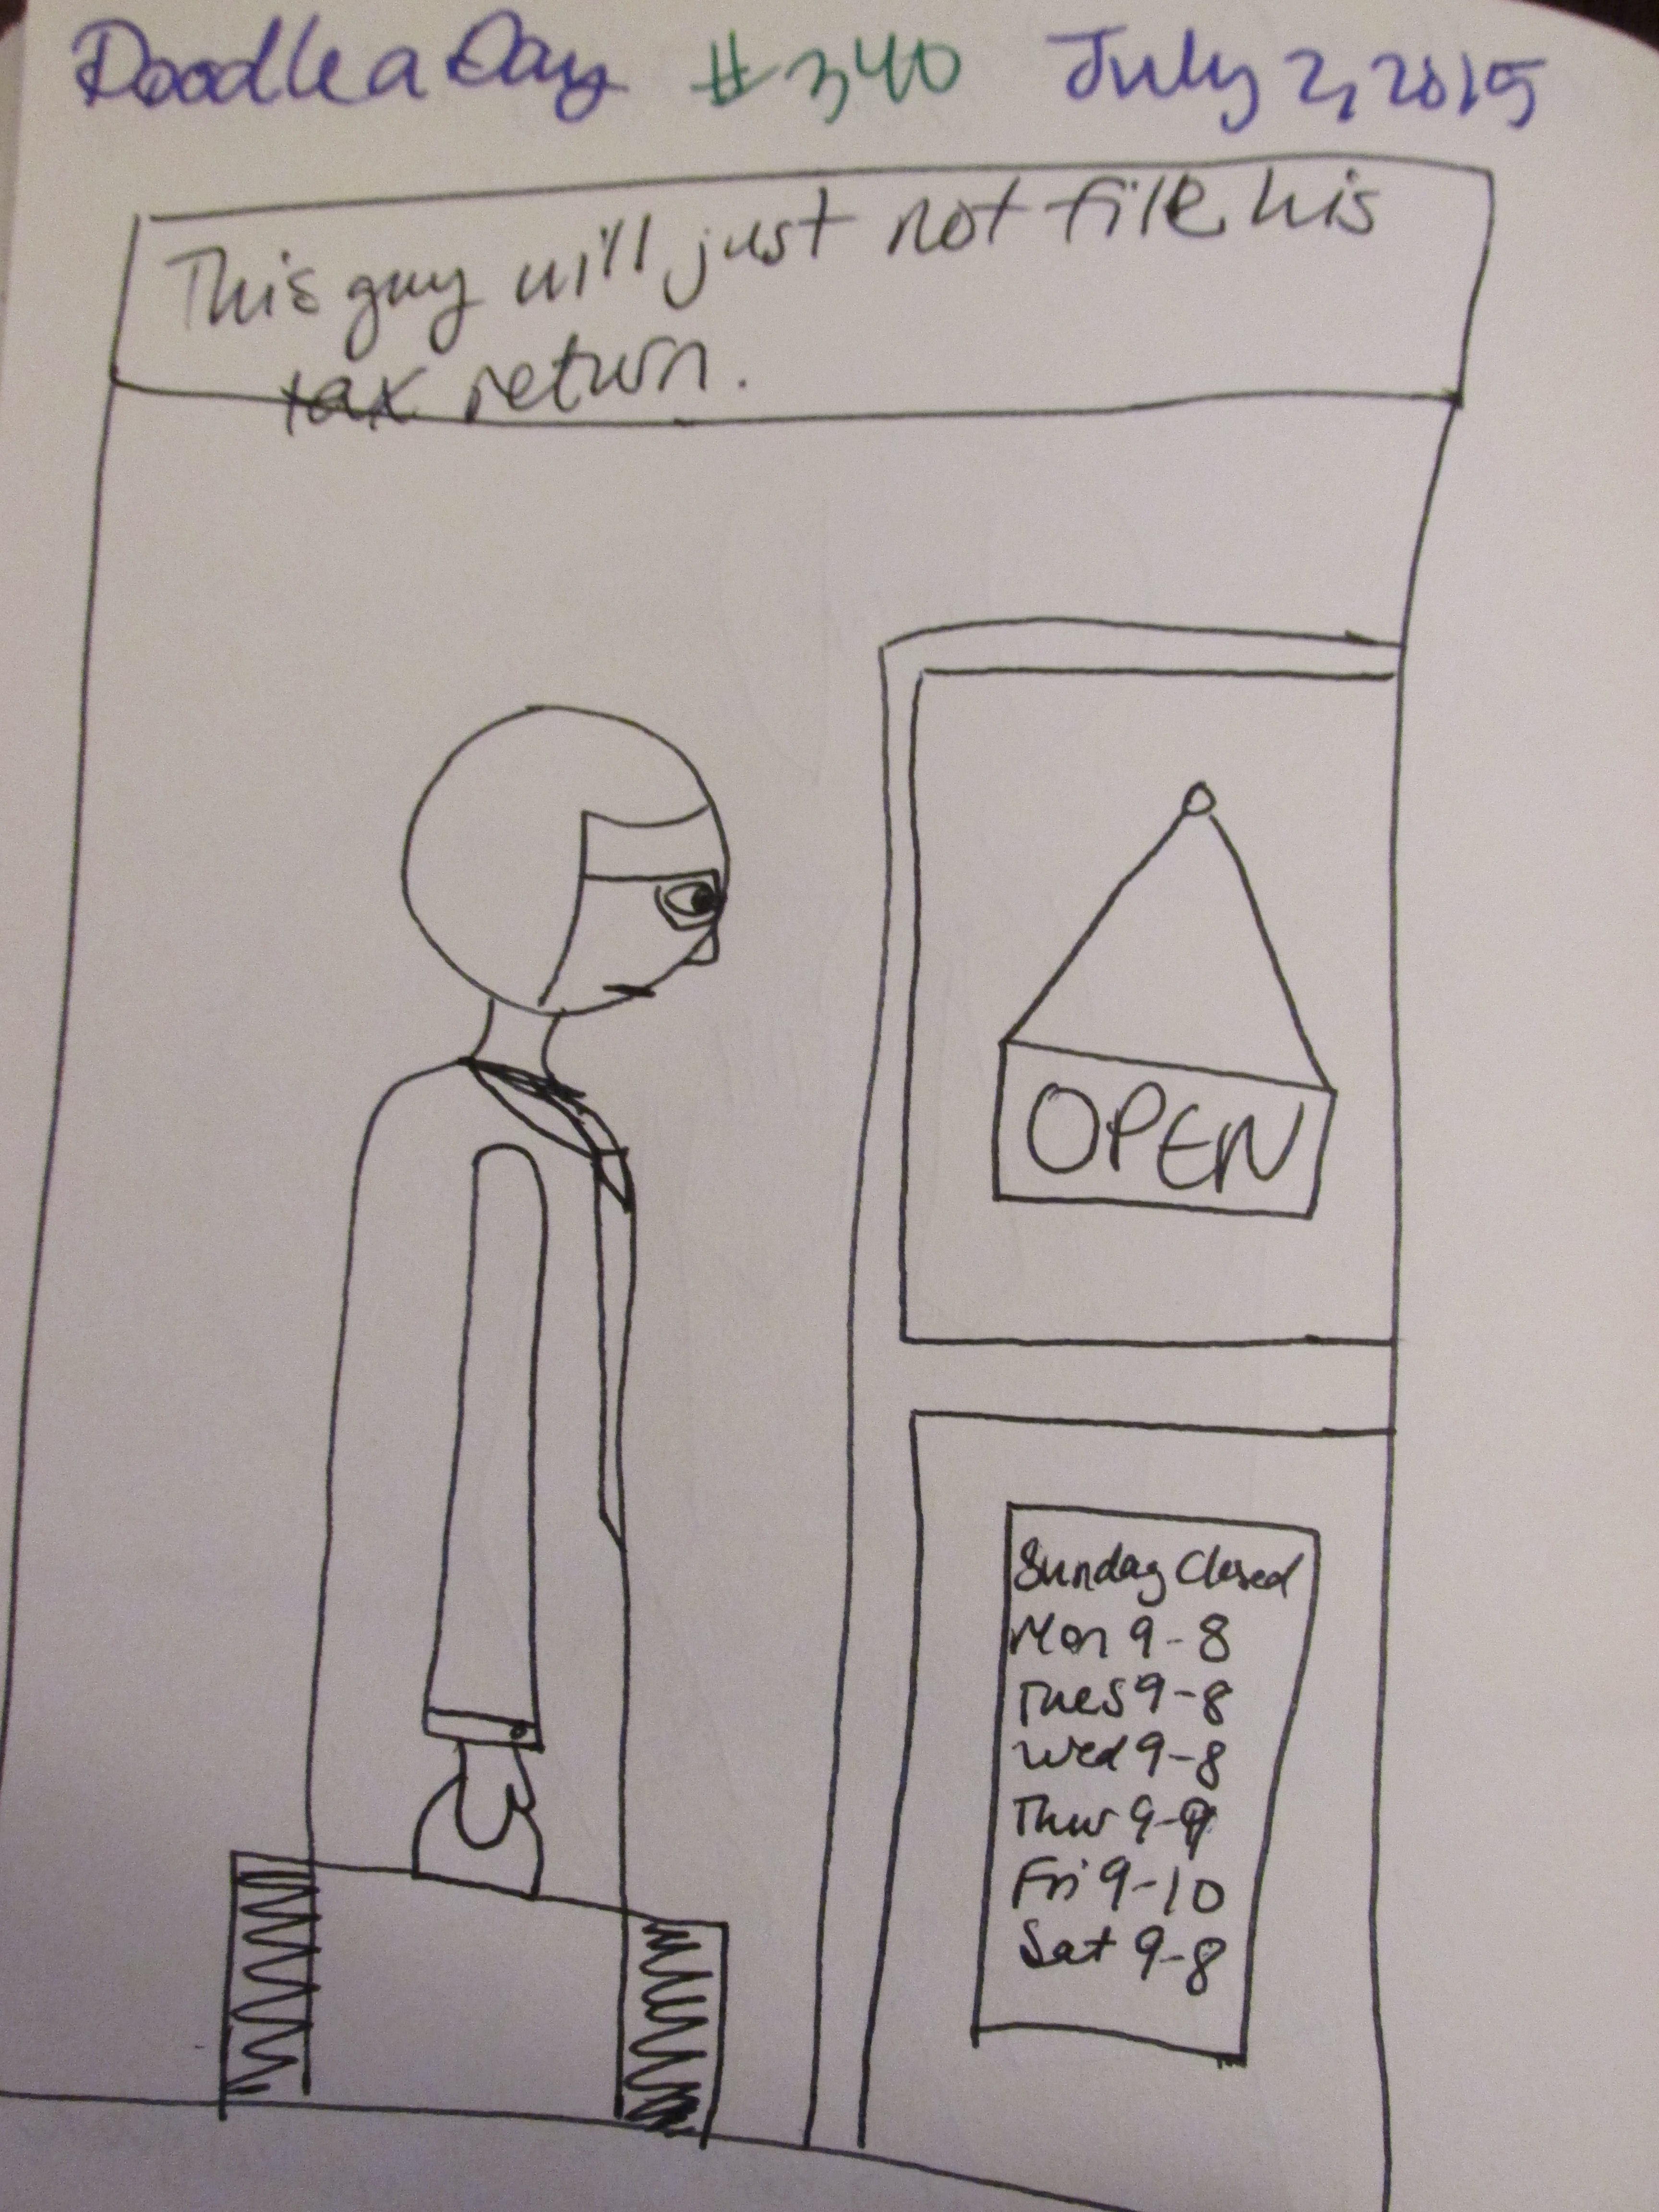 Doodle a Day #340 July 2, 2015
This guy will just not file his
tax return.
OPEN
Sunday Closed
Mon 9-8
Tues 9-8
Wed 9-8
Thur 9-9
Fri 9-10
Sat 9-8